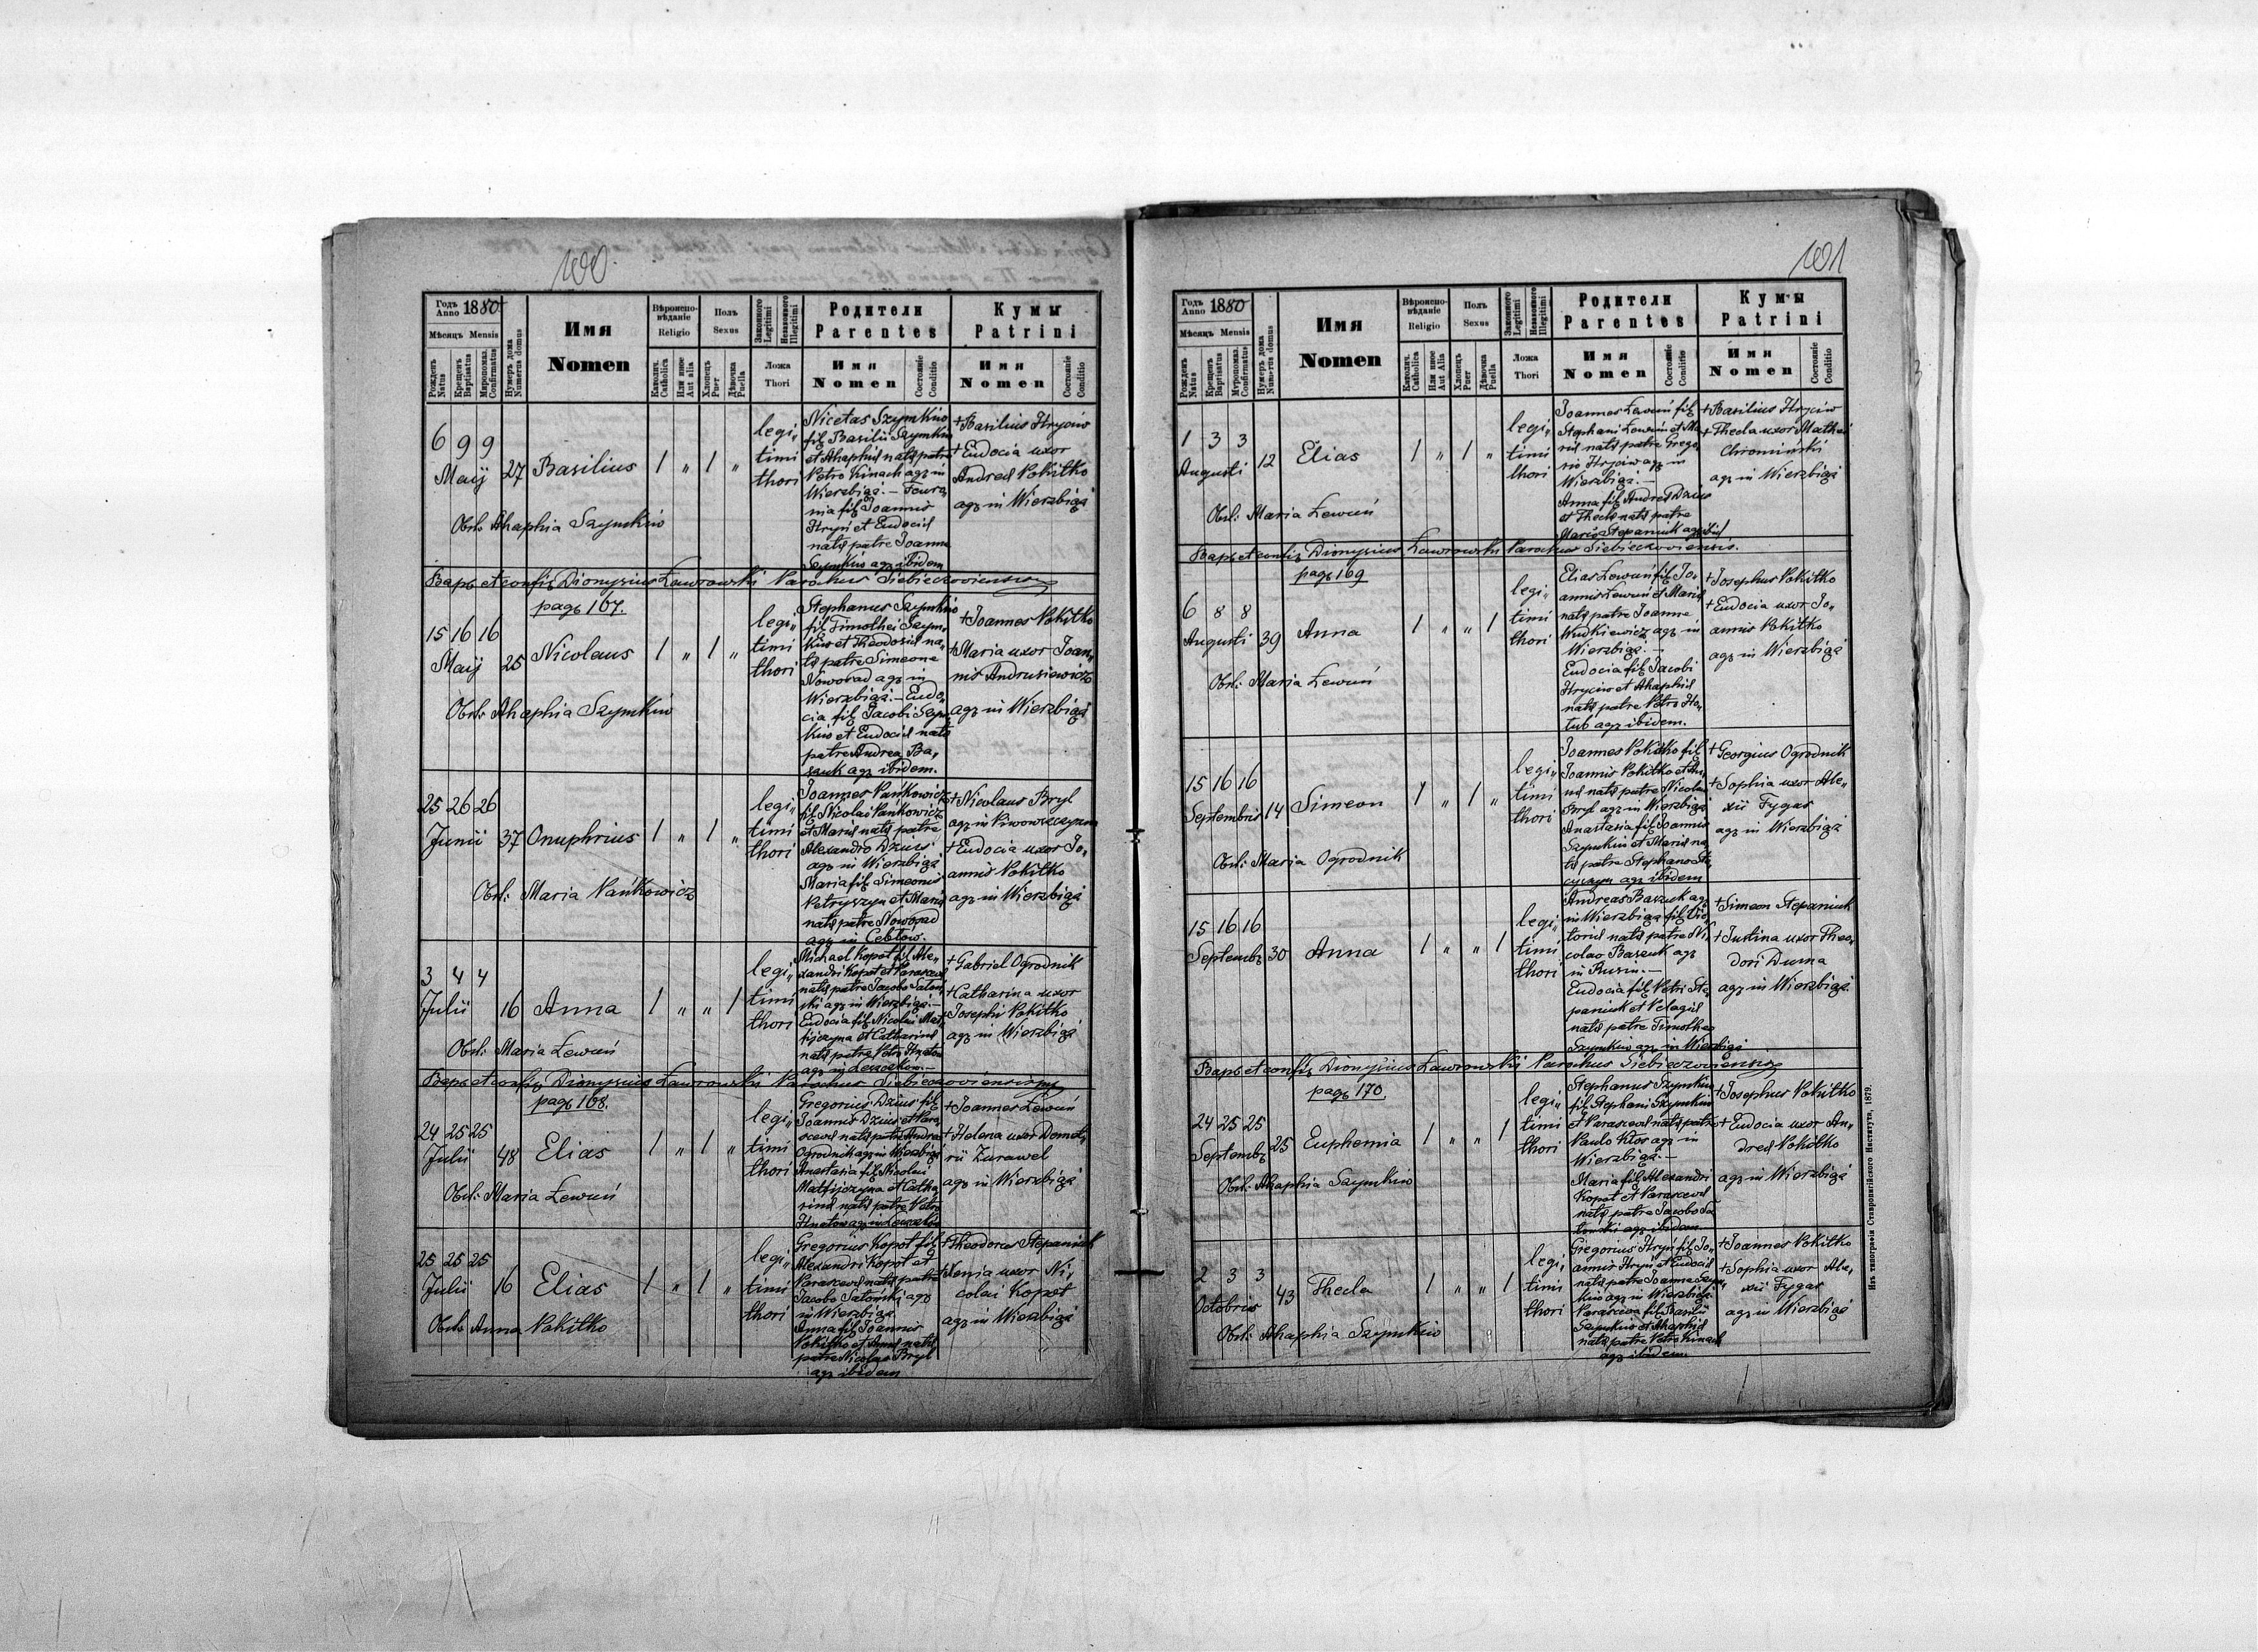 100.
Годъ Anno 1880
Мѣсяцъ Mensis
Рожденъ Natus
Крещенъ Baptisatus
Мѵропомаз. Confirmatus
Нумеръ дома Numerus domus
Имя
Nomen
Вѣроиспо-
вѣданіе
Religio
Католич. Catholica
Или иное Aut alia
Полъ
Sexus
Хлопецъ Puer
Дѣвочка Puella
Законного Legitimi
Незаконного Illegitimi
Ложа
Thori
Родители
Parentes
Имя
Nomen
Состояніе Conditio
Кумы
Patrini
Имя
Nomen
Состояніе Conditio
6 9 9
Maij 27 Basilius 1 „ 1 „
legi„
timi
thori
Nicetas Szymkiw
fil. Basilii Szymkiw
et Ahaphiæ natæ patre
Petro Kinach agr. in
Wierzbiąż. —
nia fil. Joannis
Hryń et Eudociæ
natæ patre Joanne
Szymkiw agr. ibidem
+ Basilius Hryciw
+ Eudocia uxor
Andreæ Pokitko
agr. in Wierzbiąż
Obst. Ahaphia Szymkiw
Bapt. et conf. Dionysius Ławrowski Parochus Siebieczoviensis
pag. 167.
15 16 16
Maij 25 Nicolaus 1 „ 1 „
legi„
timi
thori
Stephanus Szymkiw
fil. Timothei Szym„
kiw et Theodosiæ na„
tæ patre Simeone
Noworad agr. in
Wierzbiąż. — Eudo„
cia fil. Jacobi Szym„
kiw et Eudociæ natæ
patre Andrea Ba„
szuk agr. ibidem.
+ Joannes Pokitko
+ Maria uxor Joan„
nis Andrusiewicz
agr. in Wierzbiąż
Obst: Ahaphia Szymkiw
25 26 26
Junii 37 Onuphrius 1 „ 1 „
legi„
timi
thori
Joannes Pańkowicz
fil. Nicolai Pańkowicz
et Mariæ natæ patre
Alexandro Dzius
agr. in Wierzbiąż
Maria fil. Simeonis
Petryszyn et Mariæ
natæ patre Noworad
agr. in Cebłow.
+ Nicolaus Bryl
agr. in Piwowszczyzna
+ Eudocia uxor Jo„
annis Pokitko
agr. in Wierzbiąż
Obst: Maria Pańkowicz
3 4 4
Julii 16 Anna 1 „ „ 1
legi„
timi
thori
Michael Kopot fil. Ale„
xandri Kopot et Parascevæ
natæ patre Jacobo Satoń„
ski agr. in Wierzbiąż. —
Eudocia fil. Nicolai Mat„
fijczyna et Catharinæ
natæ patre Petro Hnatow
agr. in Leszczkow. —
+ Gabriel Ogrodnik
+ Catharina uxor
Josephi Pokitko
agr. in Wierzbiąż
Obst: Maria Łewuń
Bapt. et conf. Dionysius Ławrowski Parochus Siebieczoviensis
pag. 168.
24 25 25
Julii 48 Elias 1 „ 1 „
legi„
timi
thori
Gregorius Dzius fil.
Joannis Dzius et Para„
scevæ natæ patre Andrea
Ogrodnik agr. in Wierzbiąż
Anastasia fil. Nicolai
Matfijczyna et Catha„
rinæ natæ patre Petro
Hnatow agr. in Leszczkow
+ Joannes Łewuń
+ Helena uxor Demet„
rii Żurawel
agr. in Wierzbiąż
Obst: Maria Łewuń
25 25 25
Julii 16 Elias 1 „ 1 „
legi„
timi
thori
Gregorius Kopot fil.
Alexandri Kopot et
Parascevæ natæ patre
Jacobo Satoński agr.
in Wierzbiąż
Anna fil. Joannis
Pokitko et Annæ natæ
patre Nicolao Bryl
agr. ibidem
+ Theodorus Stepaniuk
+ Xenia uxor Ni„
colai Kopot
agr. in Wierzbiąż
Obst. Anna Pokitko
101
Годъ Anno 1880
Мѣсяцъ Mensis
Рожденъ Natus
Крещенъ Baptisatus
Мѵропомаз. Confirmatus
Нумеръ дома Numerus domus
Имя
Nomen
Вѣроиспо-
вѣданіе
Religio
Католич. Catholica
Или иное Aut Alia
Полъ
Sexus
Хлопецъ Puer
Дѣвочка Puella
Законного Legitimi
Незаконного Illegitimi
Ложа
Thori
Родители
Parentes
Имя
Nomen
Состояніе Conditio
Кумы
Patrini
Имя
Nomen
Состояніе Conditio
1 3 3
Augusti 12 Elias 1 „ 1 „
legi„
timi
thori
Joannes Łewuń fil.
Stephani Łewuń et Ma„
riæ natæ patre Grego„
rio Hryciw agr. in
Wierzbiąż. —
Anna fil. Andreæ Dzius
et Theclæ natæ patre
Marco Stepaniuk agr. ibid
+ Basilius Hryciw
+ Thecla uxor Mathei
Chromiński
agr. in Wierzbiąż
Obst: Maria Łewuń
Bapt. et conf. Dionysius Ławrowski Parochus Siebieczoviensis.
pag. 169
6 8 8
Augusti 39 Anna 1 „ „ 1
legi„
timi
thori
Elias Łewuń fil. Jo„
annis Łewuń et Mariæ
natæ patre Joanne
Wudkiewicz agr. in
Wierzbiąż. —
Eudocia fil. Jacobi
Hryciw et Ahaphiæ
natæ patre Petro Ho„
łub agr. ibidem.
+ Josephus Pokitko
+ Eudocia uxor Jo„
annis Pokitko
agr. in Wierzbiąż
Obst: Maria Łewuń
15 16 16
Septembris 14 Simeon 1 „ 1 „
legi„
timi
thori
Joannes Pokitko fil.
Joannis Pokitko et An„
næ natæ patre Nicolao
Bryl agr. in Wierzbiąż
Anastasia fil. Joannis
Szymkiw et Mariæ na„
tæ patre Stephano
agr. ibidem
+ Georgius Ogrodnik
+ Sophia uxor Ale„
xii Fygas
agr. in Wierzbiąż
Obst: Maria Ogrodnik
15 16 16
Septembr. 30 Anna 1 „ „ 1
legi„
timi
thori
Andreas Baszuk agr.
in Wierzbiąż fil. Vic„
toriæ natæ patre Ni„
colao Baszuk agr.
in Rusin. —
Eudocia fil. Petri Ste„
paniuk et Pelagiæ
natæ patre Timotheo
Szymkiw agr. in Wierzbiąż
+ Simeon Stepaniuk
+ Justina uxor Theo„
dori Duma
agr. in Wierzbiąż
Bapt. et conf. Dionysius Ławrowski Parochus Siebieczoviensis
pag. 170.
24 25 25
Septembr. 25 Euphemia 1 „ „ 1
legi„
timi
thori
Stephanus Szymkiw
fil. Stephani Szymkiw
et Parascevæ natæ patre
Paulo Kłos agr. in
Wierzbiąż. —
Maria fil. Alexandri
Kopot et Parascevæ
natæ patre Jacobo Sa„
toński agr. ibidem
+ Josephus Pokitko
+ Eudocia uxor An„
dreæ Pokitko
agr. in Wierzbiąż
Obst. Ahaphia Szymkiw
2 3 3
Octobris 43 Thecla 1 „ „ 1
legi„
timi
thori
Gregorius Hryń fil. Jo„
annis Hryń et Eudociæ
natæ patre Joanne Szym„
kiw agr. in Wierzbiąż
Parasceva fil. Basilii
Szymkiw et Ahaphiæ
natæ patre Petro Kinach
agr. ibidem.
+ Joannes Pokitko
+ Sophia uxor Ale„
xii Fygas
agr. in Wierzbiąż
Obst: Ahaphia Szymkiw
Изъ типографіи Ставропигійского Института, 1879.